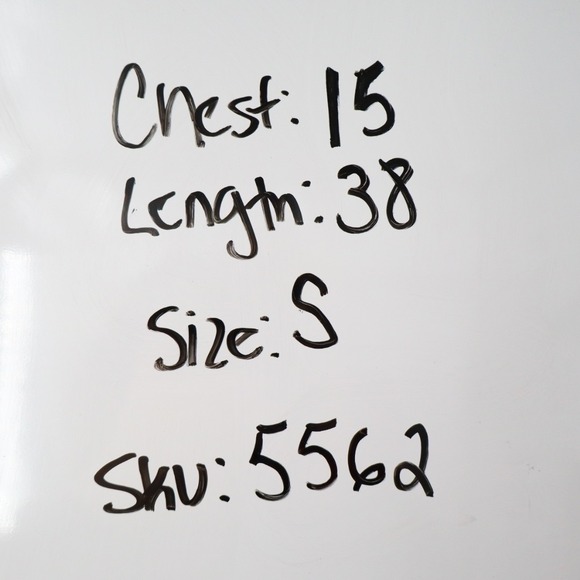 Chest: 15
Length: 38
Size: S
Sku: 5562